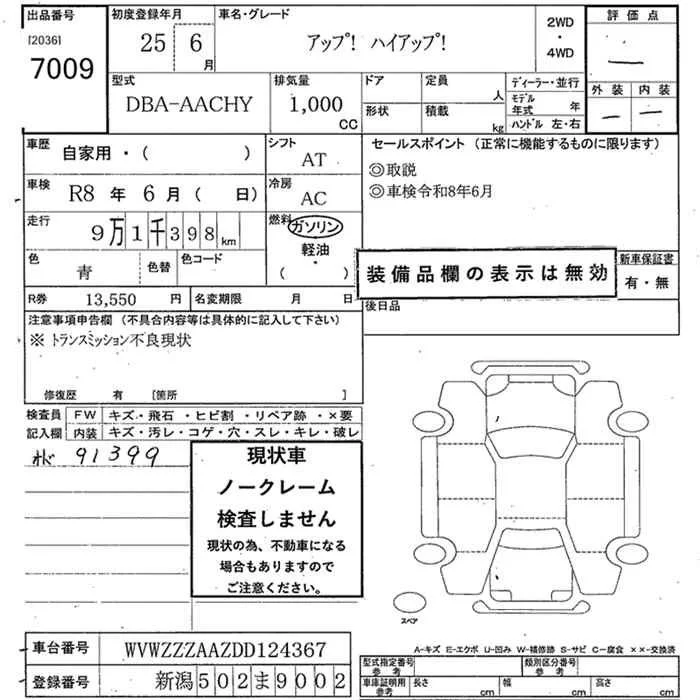 出品番号 初度登録年月 車名・グレード 2WD ・ 4WD 評価点
[2036] 7009 25 6月 アップ! ハイアップ! —
型式 排気量 ドア 定員 人 ディーラー・並行 外装 内装
DBA-AACHY 1,000 CC 形状 積載 kg モデル年式 年 ハンドル 左・右 — —
車歴 自家用・( ) シフト AT セールスポイント (正常に機能するものに限ります)
車検 R8 年 6 月 ( 日) 冷房 AC ◎取説
◎車検令和8年6月
走行 9万1千398km 燃料 ガソリン
軽油・
( )
色 青 色替 色コード 装備品欄の表示は無効 新車保証書
有・無
R券 13,550 円 名変期限 月 日 後日品
注意事項申告欄 (不具合内容等は具体的に記入して下さい)
※ トランスミッション不良現状
修復歴 有 [箇所 ]
検査員 FW キズ・飛石・ヒビ割・リペア跡・×要
記入欄 内装 キズ・汚レ・コゲ・穴・スレ・キレ・破レ
91399
現状車
ノークレーム
検査しません
現状の為、不動車になる
場合もありますので
ご注意ください。
スペア
A-キズ E-エクボ U-凹み W-補修跡 S-サビ C-腐食 ××-交換済
車台番号 WVWZZZAAZDD124367
型式指定番号 参考 類別区分番号 参考
登録番号 新潟502ま9002
車庫証明用 参考 長さ cm 幅 cm 高さ cm